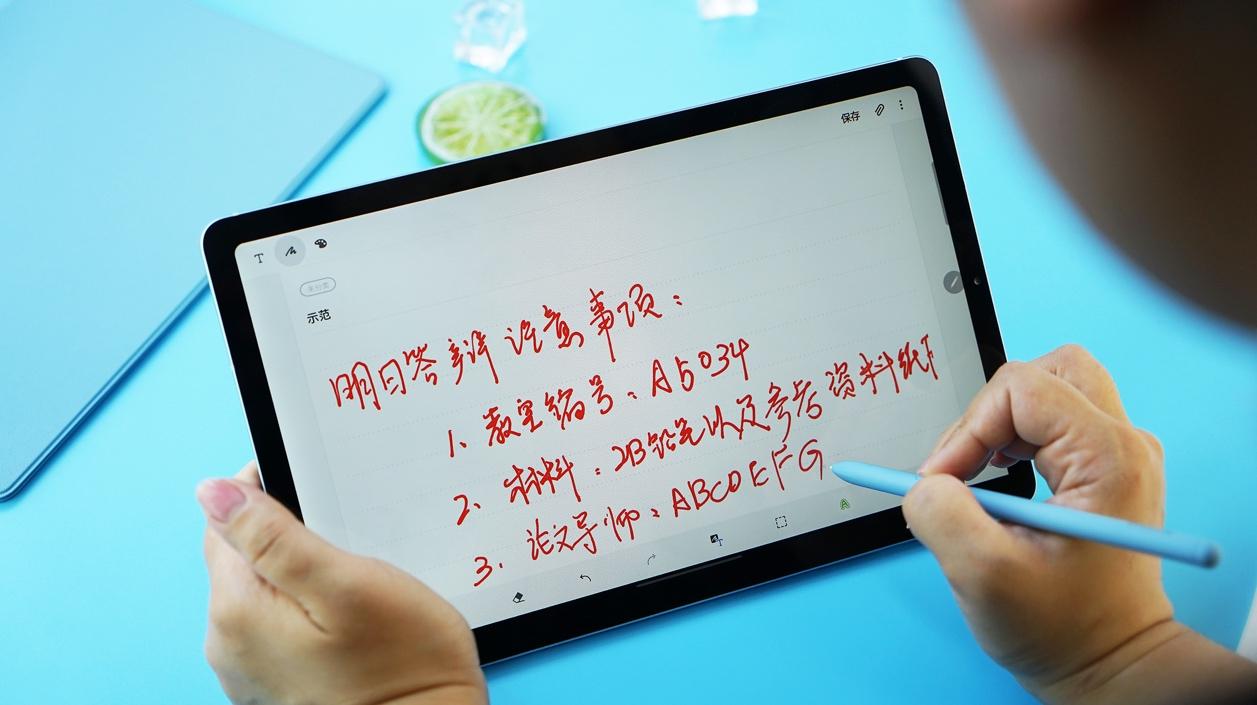 保存
T
未分类
示范
明日答辩注意事项:
1、教室编号:A5034
2、材料:2B铅笔以及参考资料纸质
3、论文导师:ABCDEFG